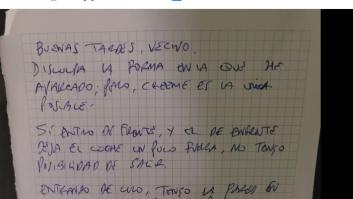 BUENAS TARDES, VECINO.
DISCULPA LA FORMA EN LA QUE HE
APARCADO, PERO, CREEME ES LA única
POSIBLE.
SI ENTRO DE FRENTE, Y EL DE ENFRENTE
DEJA EL COCHE UN POCO FUERA, NO TENGO
POSIBILIDAD DE SALIR.
ENTRANDO DE CULO, TENGO LA PARED EN